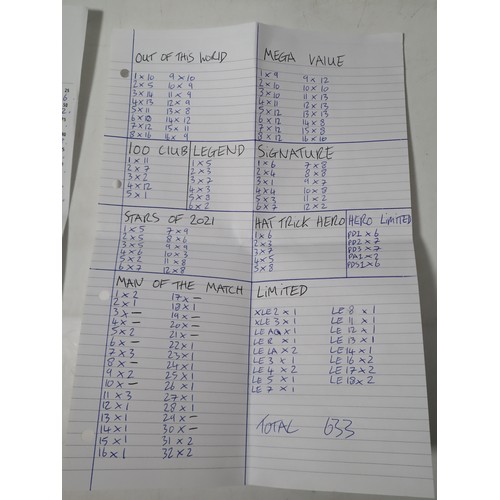 OUT OF THIS WORLD
1 x 10 9 x 10
2 x 5 10 x 9
3 x 14 11 x 9
4 x 13 12 x 9
5 x 12 13 x 8
6 x 14 x 12
7 x 12 15 x 11
8 x 16 x 9
MEGA VALUE
1 x 9 9 x 12
2 x 10 10 x 10
3 x 10 11 x 13
4 x 11 12 x 10
5 x 12 13 x 13
6 x 12 14 x 8
7 x 14 15 x 8
8 x 12 16 x 10
100 CLUB
1 x 11
2 x 7
3 x 2
4 x 12
5 x 1
LEGEND
1 x 5
2 x 3
3 x 7
4 x 3
5 x 8
6 x 2
SIGNATURE
1 x 6 7 x 8
2 x 4 8 x 8
3 x 1 9 x 7
4 x 4 10 x 8
5 x 8 11 x 2
6 x 7 12 x 2
STARS OF 2021
1 x 5 7 x 9
2 x 5 8 x 6
3 x 6 9 x 9
4 x 6 10 x 3
5 x 2 11 x 8
6 x 7 12 x 8
HAT TRICK HERO
1 x 6
2 x 3
3 x 7
4 x 5
5 x 8
HERO LIMITED
PD1 x 6
PD2 x 7
PD3 x 7
PA1 x 2
PDS1 x 6
MAN OF THE MATCH
1 x 2 17 x -
2 x 1 18 x 1
3 x - 19 x -
4 x - 20 x -
5 x - 21 x -
6 x - 22 x 1
7 x 3 23 x 1
8 x - 24 x 1
9 x 2 25 x 1
10 x - 26 x 1
11 x 3 27 x 1
12 x 1 28 x 1
13 x 1 29 x -
14 x 1 30 x -
15 x 1 31 x 2
16 x 1 32 x 2
LIMITED
XLE 2 x 1 LE 8 x 1
XLE 3 x 1 LE 11 x 1
LE x 1 LE 12 x 1
LE R x 1 LE 13 x 1
LE 1A x 2 LE 14 x 1
LE 3 x 1 LE 16 x 2
LE 4 x 2 LE 17 x 2
LE 5 x 1 LE 18 x 2
LE 7 x 1
TOTAL 633